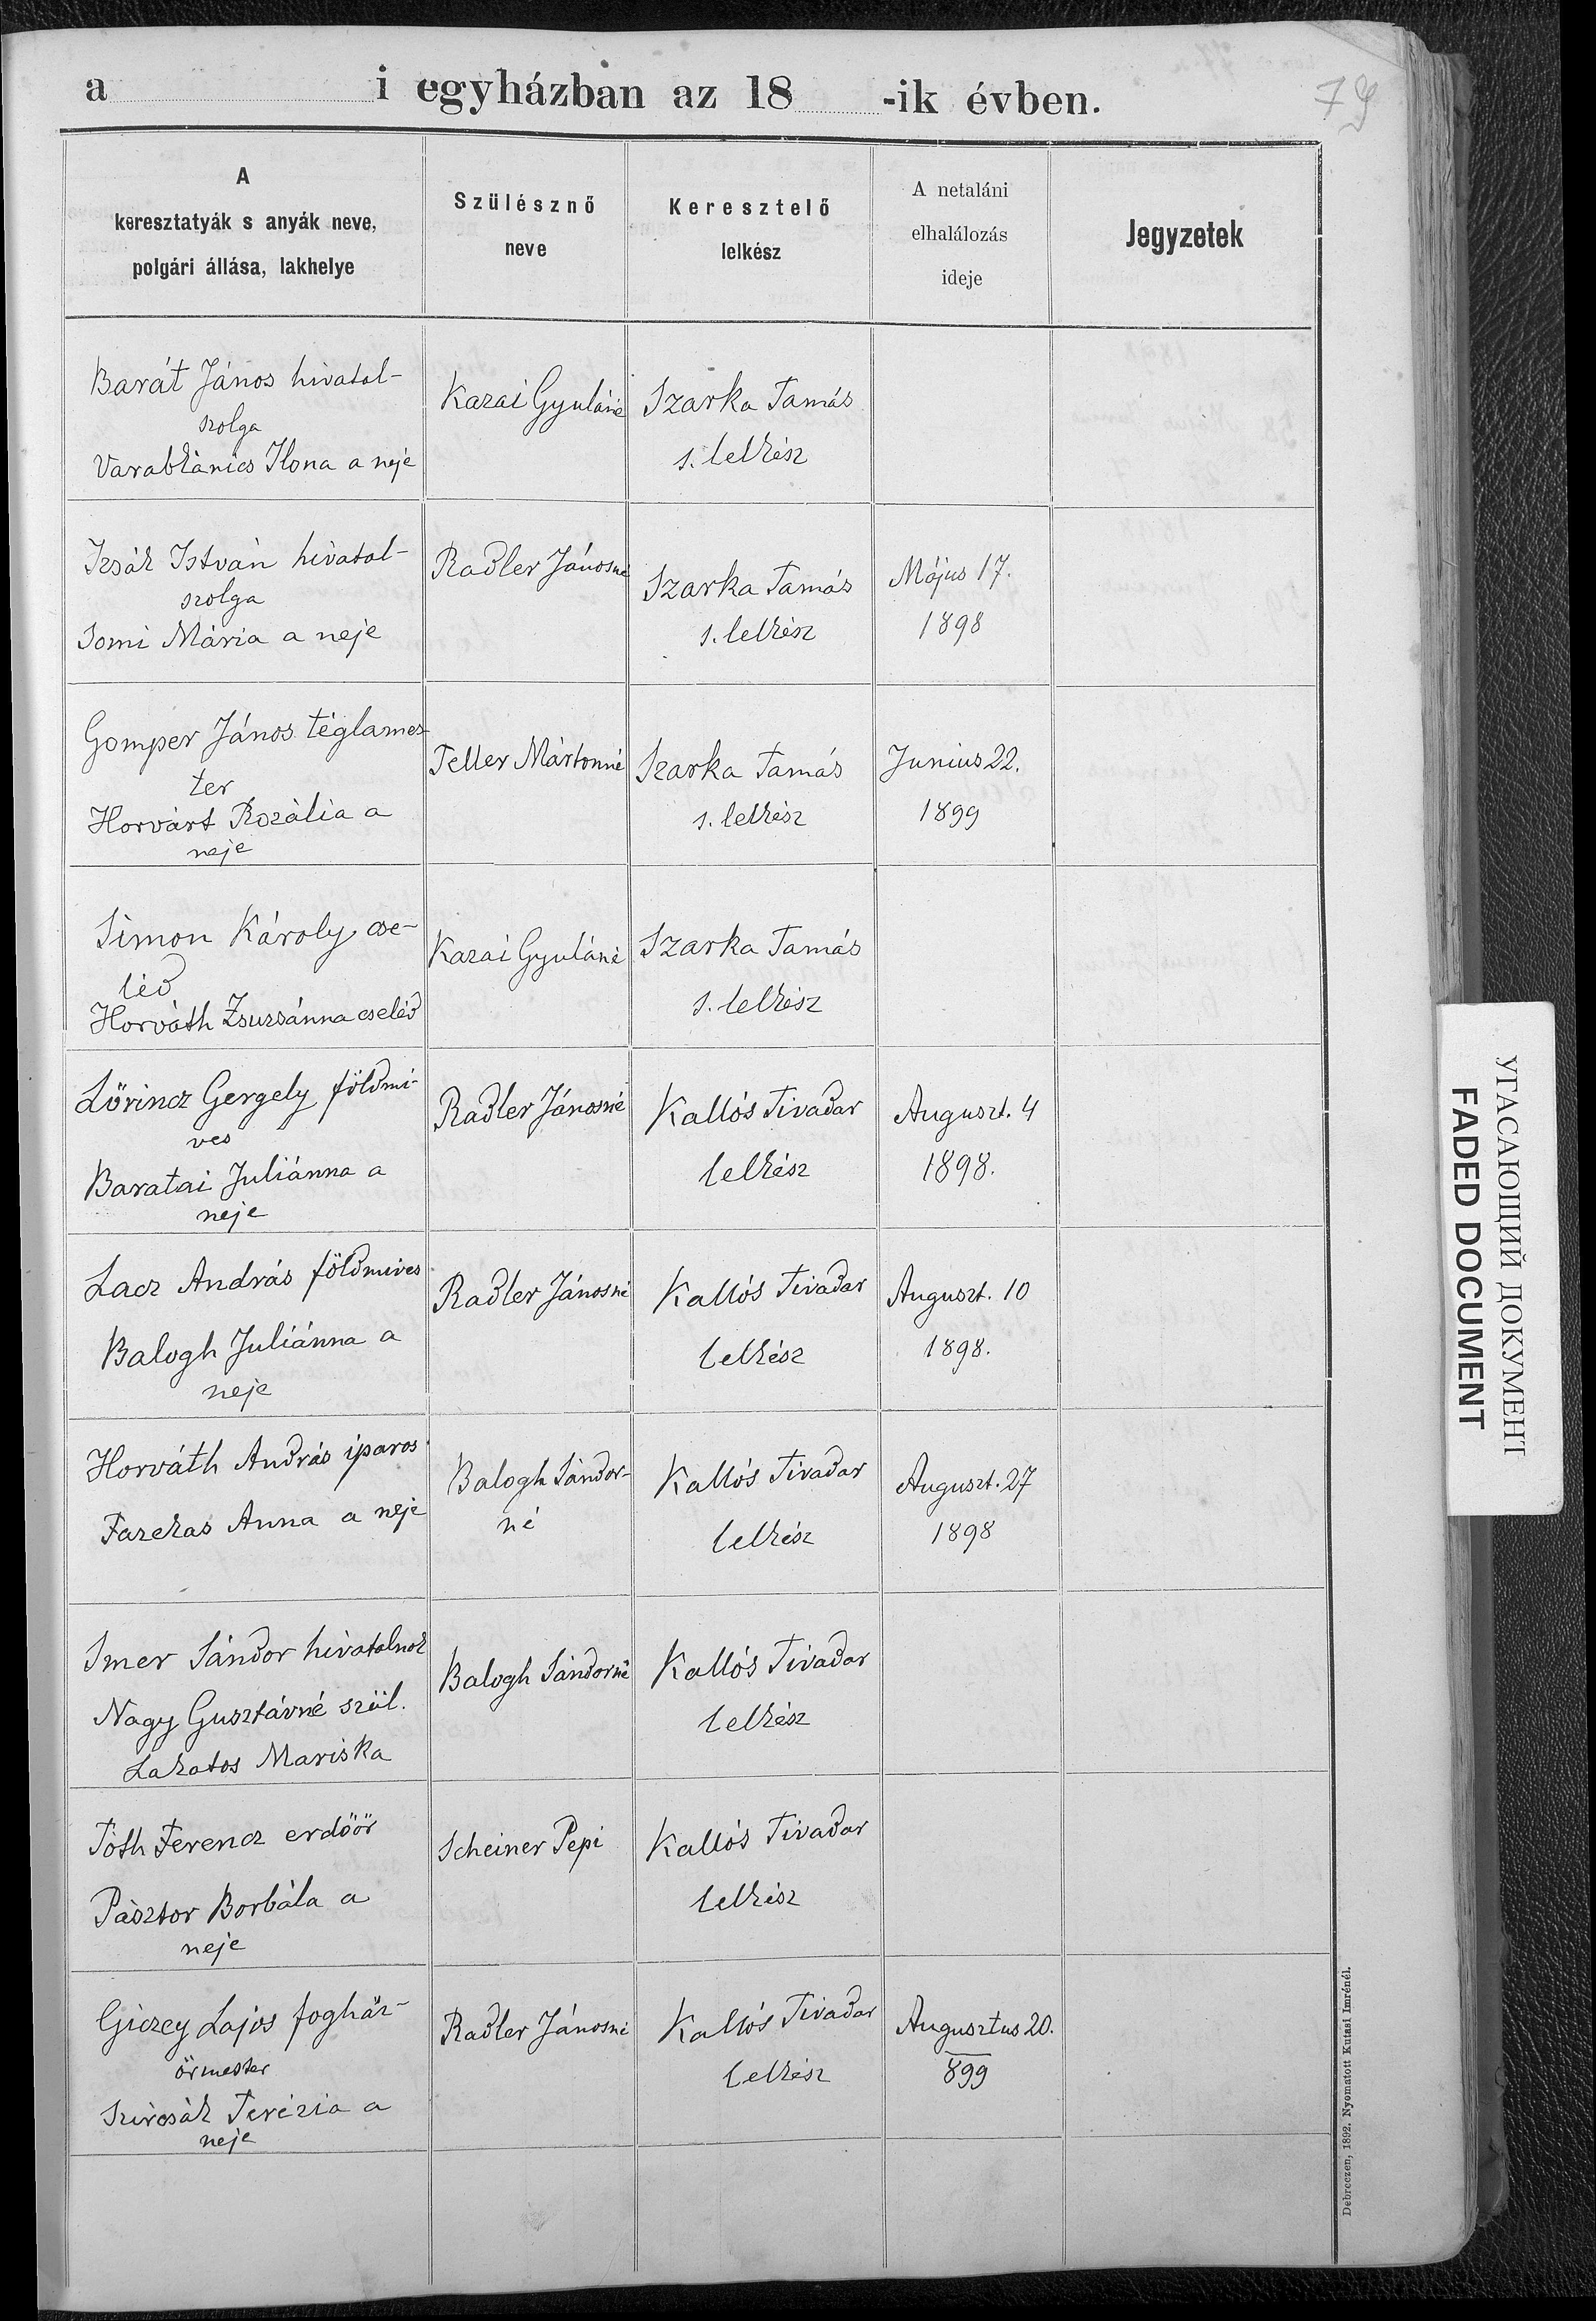 a i egyházban az 18 -ik évben.
79
A
keresztatyák s anyák neve,
polgári állása, lakhelye
Szülésznő
neve
Keresztelő
lelkész
A netaláni
elhalálozás
ideje
Jegyzetek
Barát János hivatal-
szolga
Varabkánics Ilona a neje
Kazai Gyuláné
Szarka Tamás
s. lelkész
Izsák István hivatal-
szolga
Somi Mária a neje
Radler Jánosné
Szarka Tamás
s. lelkész
Május 17.
1898
Gomper János téglames-
ter
Horvárt Rozália a
neje
Teller Mártonné
Szarka Tamás
s. lelkész
Junius 22.
1899
Simon Károly cse-
léd
Horváth Zsuzsánna cseléd
Kazai Gyuláné
Szarka Tamás
s. lelkész
Lőrincz Gergely földmi-
ves
Baratai Juliánna a
neje
Radler Jánosné
Kallós Tivadar
lelkész
Auguszt. 4
1898.
Lacz András földmives
Balogh Juliánna a
neje
Radler Jánosné
Kallós Tivadar
lelkész
Auguszt. 10
1898.
Horváth András iparos
Fazekas Anna a neje
Balogh Sándor-
né
Kallós Tivadar
lelkész
Auguszt. 27
1898
Imer Sándor hivatalnok
Nagy Gusztávné szül.
Lakatos Mariska
Balogh Sándorné
Kallós Tivadar
lelkész
Tóth Ferencz erdőőr
Pásztor Borbála a
neje
Scheiner Pepi
Kallós Tivadar
lelkész
Giczey Lajos fogház-
őrmester
Szivcsák Terézia a
neje
Radler Jánosné
Kallós Tivadar
lelkész
Augusztus 20.
899
Debreczen, 1892. Nyomatott Kutasi Imrénél.
УГАСАЮЩИЙ ДОКУМЕНТ
FADED DOCUMENT